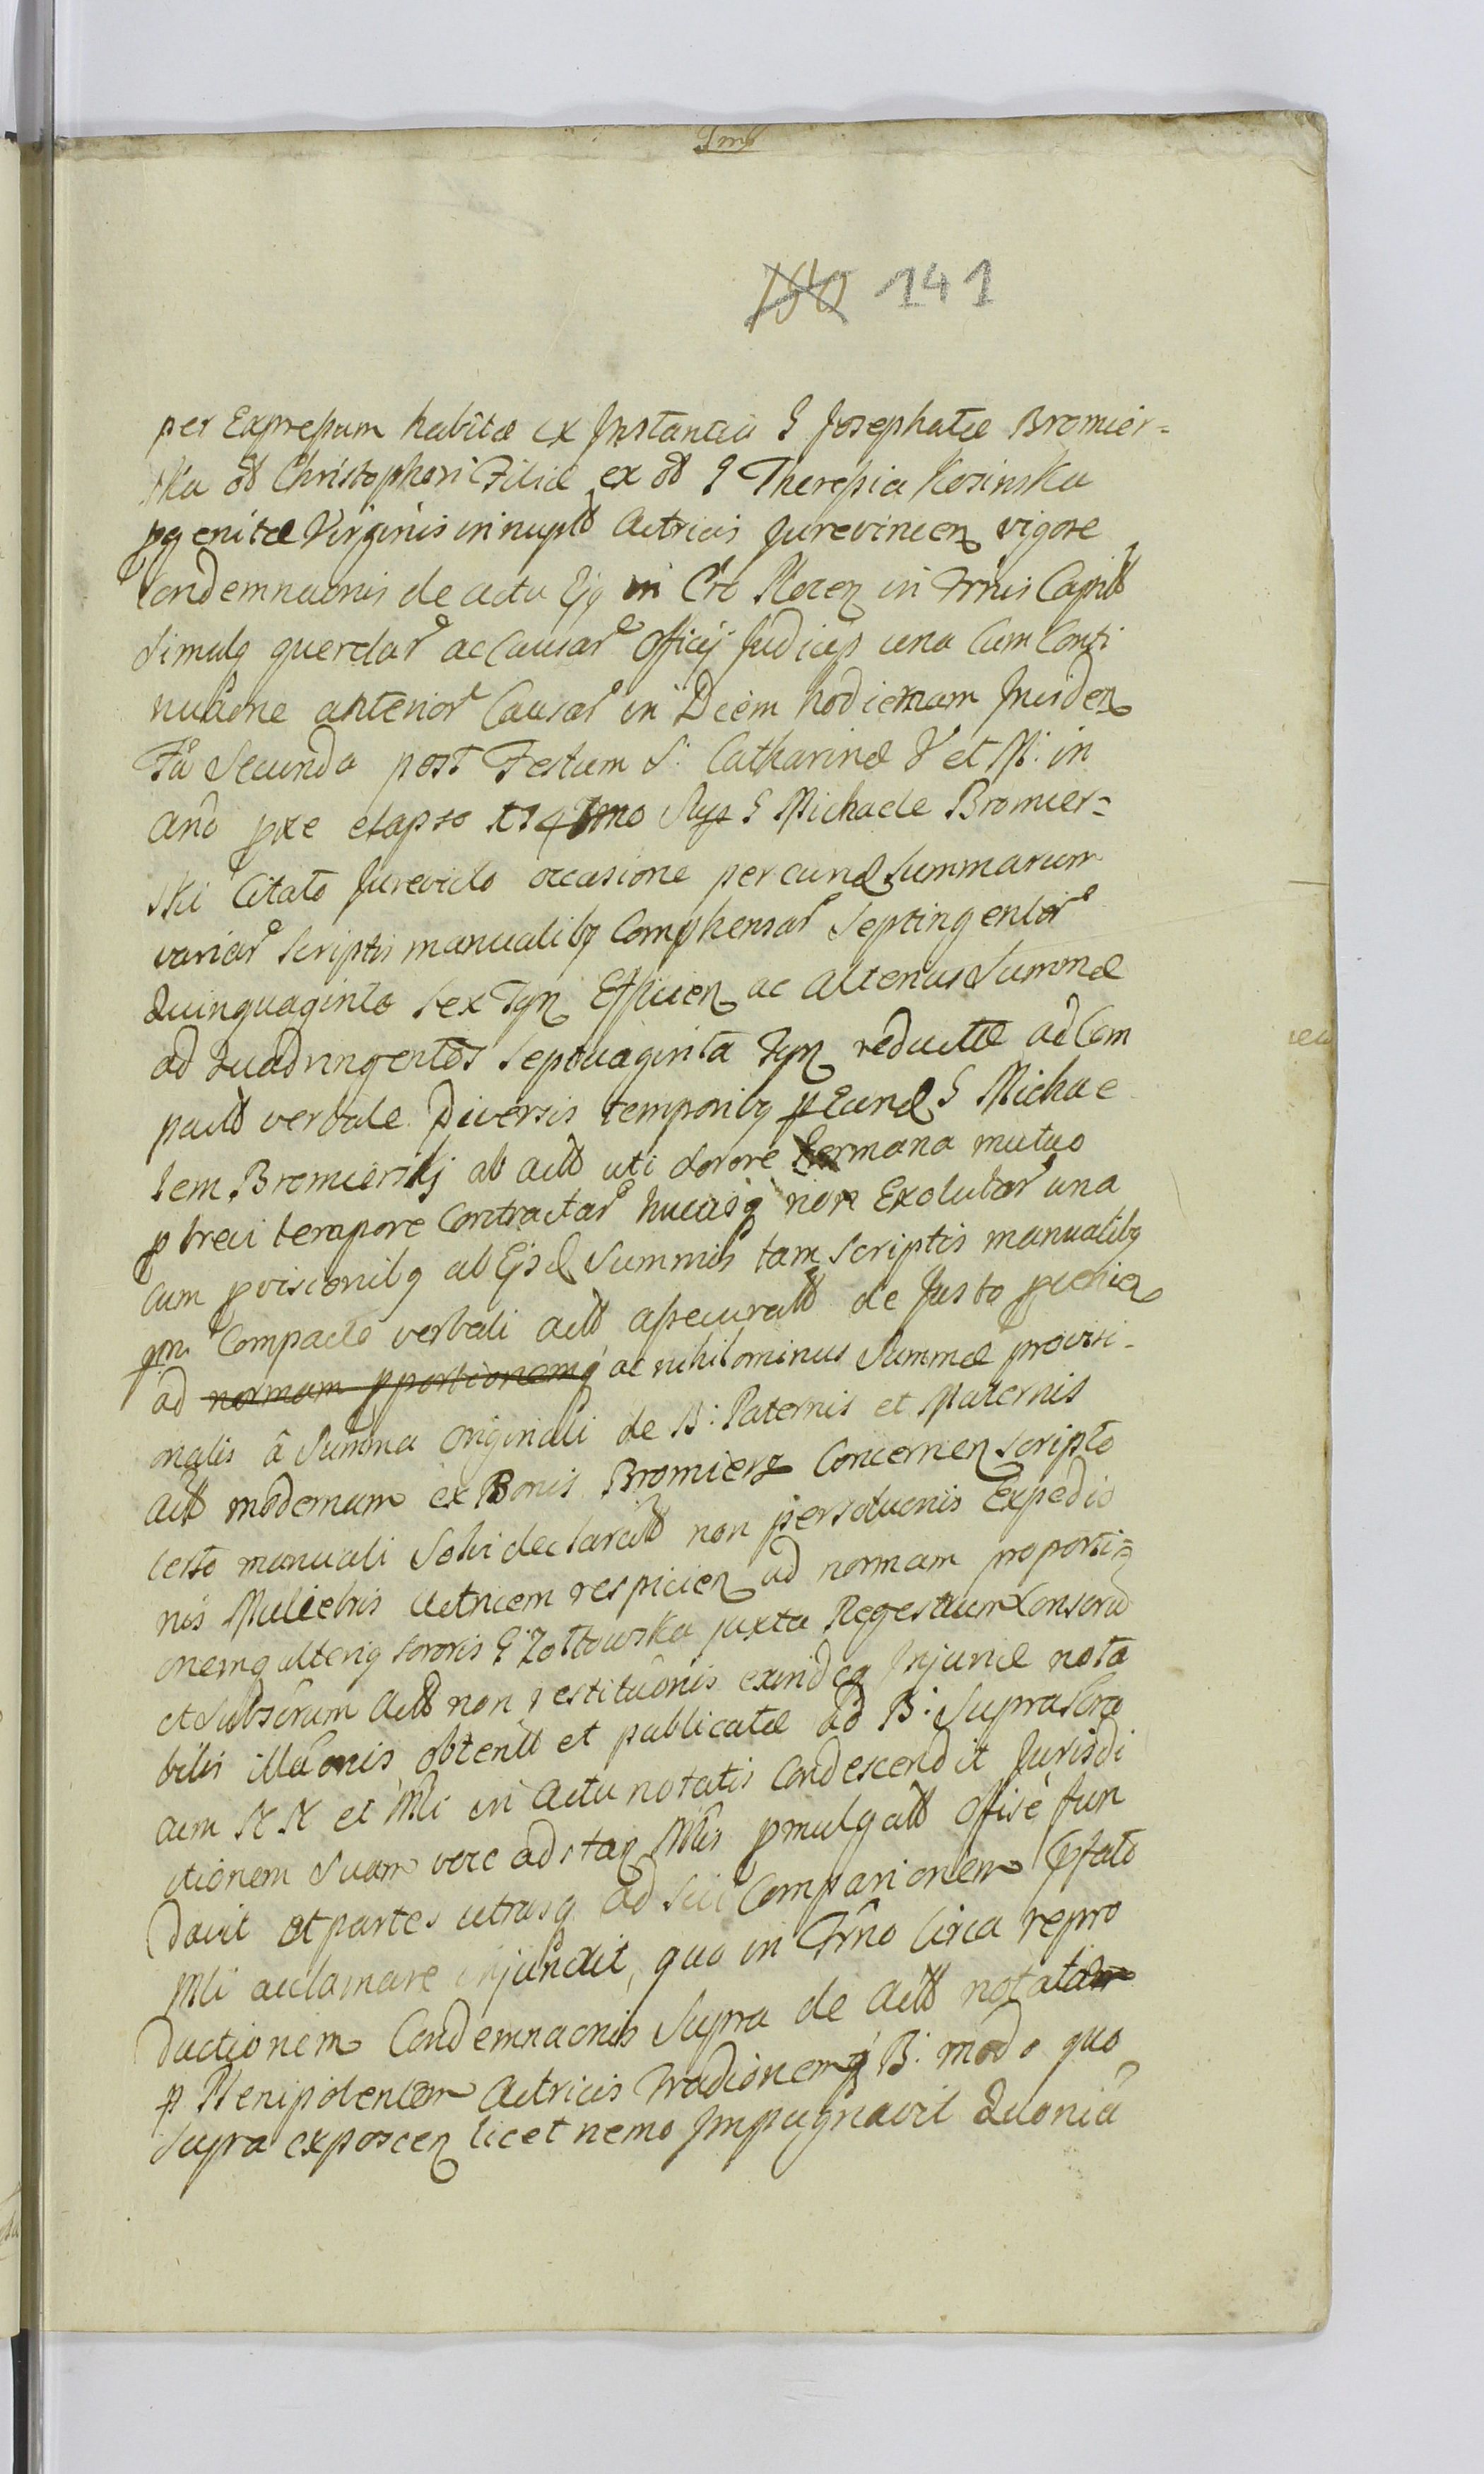 150 141
per Expressum habitæ ex Instantia G Josephatæ Bromier=
ska od Christophori Filiæ ex od G Theressia Kosinska
pgenitæ Virginis innuptæ Actricis Jurevincen vigore
Condemnaonis de actu Ejq in Cro Plocen in Trnis Captlb
simulq querelar ac Causar Officij Judicijs una Cum Conti
nuaone anterior Causar in Diem hodiernam Inciden
Fa Secunda post Festum S. Catharinæ V et M. in
Ano pxe elapso 1741mo G Michaele Bromier=
ski Citato Jurevicto occasione per eund Summarum
variar scriptis manualibq Comphensar Septingentor
Quinquaginta sex Tyn Efficien ac alterius Summæ
ad Quadringentos septuaginta Tyn reductæ ad Com
pactu verbale Diversis temporibq p Eund G Michae
lem Bromierskj ab act uti sorore Germana mutuo
p brevi tempore Contractar hucusq non Exolutar una
cum pvisionibq ab Ejsd Summis tam scriptis manualibq
qm Compacto verbali act assecurat de Justo pvenien
ad normam pportionemq ac nihilominus Summæ provisi-
onalis â Summa originali de B: Paternis et Maternis
act modernam ex Bonis Bromierz Concernen scripto
certo manuali Solvi declarat non persoluonis Expedio
nis Muliebris Actricem respicien ad normam proporti=
onemq alteriq sororis G Zołtowska juxta Regestrum Conscrid
et Subscrum act non restituonis exindeq Injuriæ nota
bilis illaonis obtent et publicatæ ad B: Suprascra
aem NN et Mli in Actu notatis Condescendit Jurisdi
ctionem Suam voce adstan Mlis pmulgat Offise fun
davit et partes utrasq ad sui Comparionem
Mli acclamare injunxit, quo in Trno Circa repro
ductionem Condemnaonis Supra de act notatam
p Plenipotentem Actricis Tradionemq B: modo quo
Supra exposcen licet nemo Impugnavit Quonia